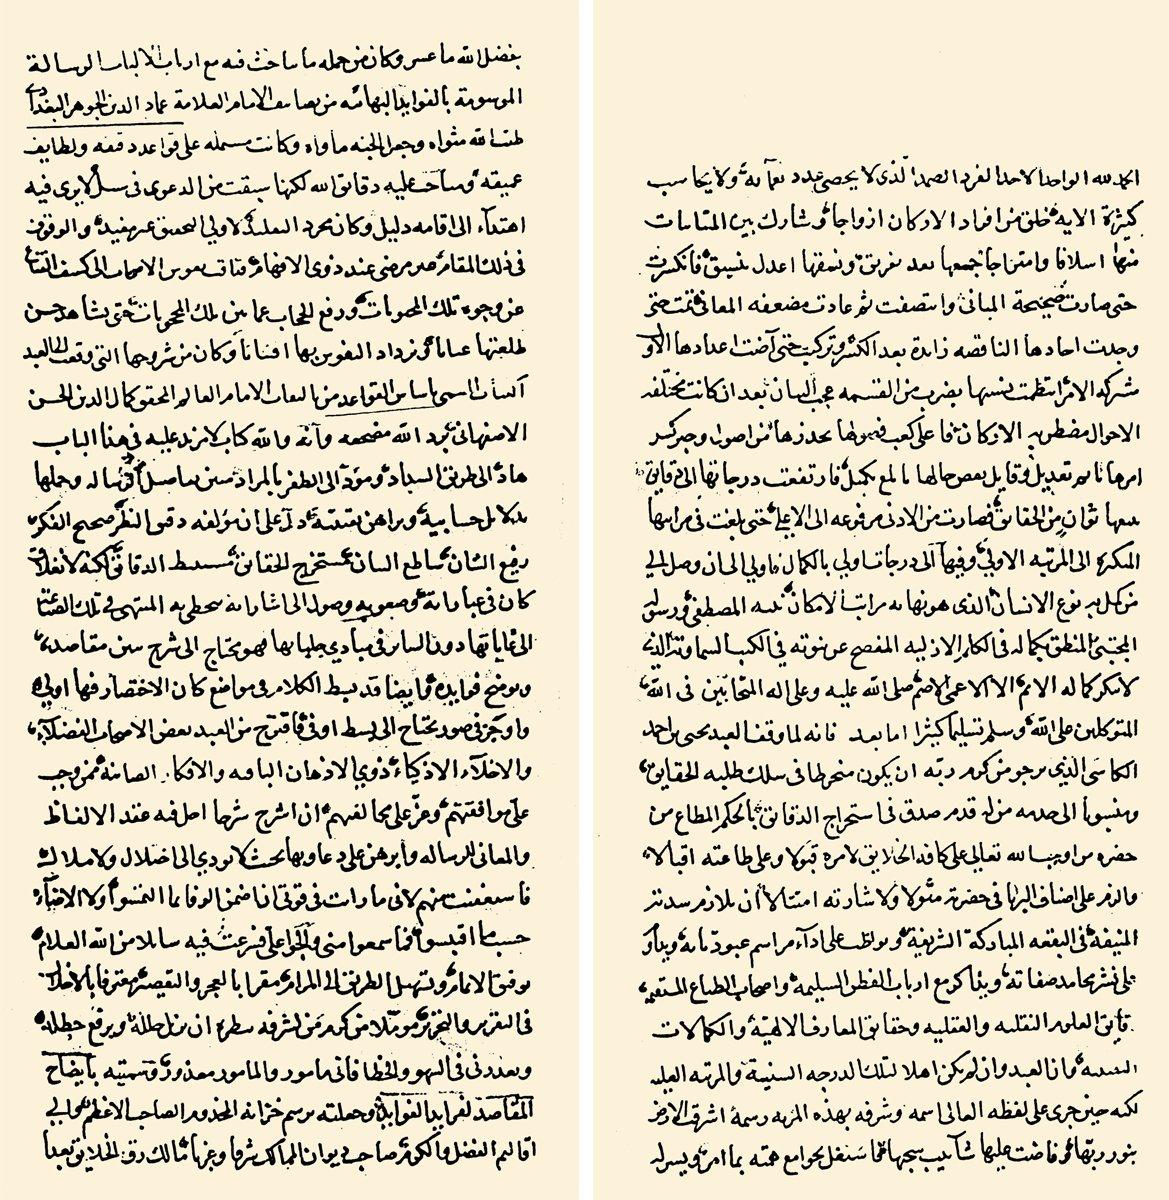 الحمد لله الواحد الاحد الفرد الصمد الذى لا يحصى عدد نعمآئه ولا يحاسب
كثرة الايه خلق من افراد الاركان ازواجا وشارك بين المتباينات
منها اسلافا وامتزاجا جمعها بعد تفريق ونسقها اعدل تنسيق فانكسرت
حتى صارت صحيحة المبانى وانتصفت ثم عادت مضعفه المعانى تمت حتى
وجدت احادها الناقصه زايدة بعد الكثر وتركبت حتى آضت اعدادها
مشركه الامر انتظمت بنسبها بضرب من القسمه عجب البيان بعد ان كانت مختلفه
الاحوال مضطربه الاركان على كعب بجذرها من اصول وجبر كسر
امرها تعديل وقابل بعض حالها تكميل فارتفعت درجاتها الى دقايق
من الحقايق فصارت من الادنى مرفوعه الى الاعلى حتى بلغت فى مراتبها
المتكرره الى المرتبه الاولى وفيها الى درجات اولى بالكمال وصل الى
من كل نوع الانسان الذى هو نهايه مراتب الامكان نبيه المصطفى ورسوله
المجتبى المنطق بكماله فى الكلام الازليه المفصح عن نبوته فى الكتب السماويه الذى
لا ينكر كماله الاتم الا الاعمى الاصم صلى الله عليه وعلى اله المتحابين فى الله
المتوكلين على الله وسلم تسليما كثيرا اما بعد فانه لما وقف العبد يحيى بن احمد
الكاشى الذى يرجو من كرم ربه ان يكون منخرطا فى سلك طلبه الحقايق
ومنسوبا الى خدمه من له قدم صدق فى استخراج الدقايق بالحكم المطاع من
حضره من اوجب الله تعالى على كافه الخلايق لامره قبولا وعلى طاعته اقبالا
والزم على اصناف البرايا فى حضرته مثولا ولاشارته امتثالا أن يلازم سدته
المنيفة فى البقعه المباركة الشريفة ويواظب على ادآء مراسم عبوديته
على نشر محامد صفاته ويذاكر مع ارباب الفطن السليمه واصحاب الطباع المستقيمه
دقايق العلوم النقليه والعقليه وحقايق المعارف الالهيه والكمالات
وان العبد وان لم يكن اهلا لتلك الدرجه السنية والمرتبه العليه
لكنه حين جرى على لفظه العالى اسمه وشرفه بهذه المرتبه رسمه اشرقت الارض
بنور ربها وفاضت عليها شآبيب سحبها فاشتغل بجوامع همته بما امر ويسر له
بفضل الله ما عسر وكان من جمله ما يباحث فيه مع ارباب الالباب الرسالة
الموسومة بالفوايد البهائيه من تصانيف الامام العلامة عماد الدين الجوهر البغدادى
طيب الله مثواه وجعل الجنه ماواه وكانت مشتمله على قواعد دقيقه ولطايف
عميقه ومباحث عليه دقايق الله لكنها سبقت من الدعوى فى سبل لا يرى فيه
اهتدآء الى اقامه دليل وكان مجرد التقليد لاولى التحقيق غير مفيد والوقوف
فى ذلك المقام غير مرضى عند ذوى الافهام تاقت نفوس الاصحاب الى كشف القناع
عن وجوه تلك المحجوبات ورفع الحجاب عما بين تلك المحجوبات حتى يشاهد حسن
طلعتها عيانا وتزداد النفوس بها افتنانا وكان من شروحها التى وقعت الى العبد
الكتاب المسمى باساس القواعد من تاليفات الامام العالم المحقق كمال الدين الحسن
الاصفهانى برد الله مضجعه وأنه والله كتاب لا مزيد عليه فى هذا الباب
هاد الى طريق السداد ومود الى الظفر بالمراد مبين تفاصيل الرساله وجملها
بدلايل حسابية وبراهين يقينية دآل على ان مؤلفه دقيق النظر صحيح الفكر
رفيع الشان ساطع البيان مستخرج الحقايق مستنبط الدقايق لكنه لانغلاق
كان فى عباراته وصعوبه وصول الى اشاراته يحظى به المنتهى فى تلك الصناعة
الى غاياتها دون الساير فى مبادى جلياتها فهو يحتاج الى شرح يبين مقاصده
ويوضح فوايده وايضا قد بسط الكلام فى مواضع كان الاختصار فيها اولى
واوجز فى صور يحتاج الى بسط اوفى فاقترح من العبد بعض الاصحاب الفضلاء
والاخلآء الاذكياء ذوى الاذهان الثاقبه والافكار الصائبه ممن وجب
على موافقتهم وعز على مخالفتهم ان اشرح شرحا احل فيه عقد الالفاظ
والمعانى للرساله وأبرهن على دعاويها بحيث لا يودى الى اخلال ولا ملال
فاسعفت منهم لانى ما رات فى قوتى انا ضمن الوفا بما التمسوا ولا الاضآء
حسب ما اقتبسوا فما سمعوا منى والحوا على فشرعت فيه سايلا من الله العلام
توفيق الاتمام وتسهيل الطريق الى المرام مقرا بالعجز والنقيصة معترفا بالاخلال
فى التقرير والتحرير موملا من كرم من تشرفه بنظره ان يزيل خلله ويرفع خطله
ويعذرنى فى السهو والخطا فانى مامور والمامور معذور وسميته بايضاح
المقاصد لفرايد الفوايد وجعلته برسم خزانه المخدوم الصاحب الاعظم والى
اقاليم الفضل والكرم صاحب ديوان الممالك شرقا وغربا مالك رق الخلايق بعدا